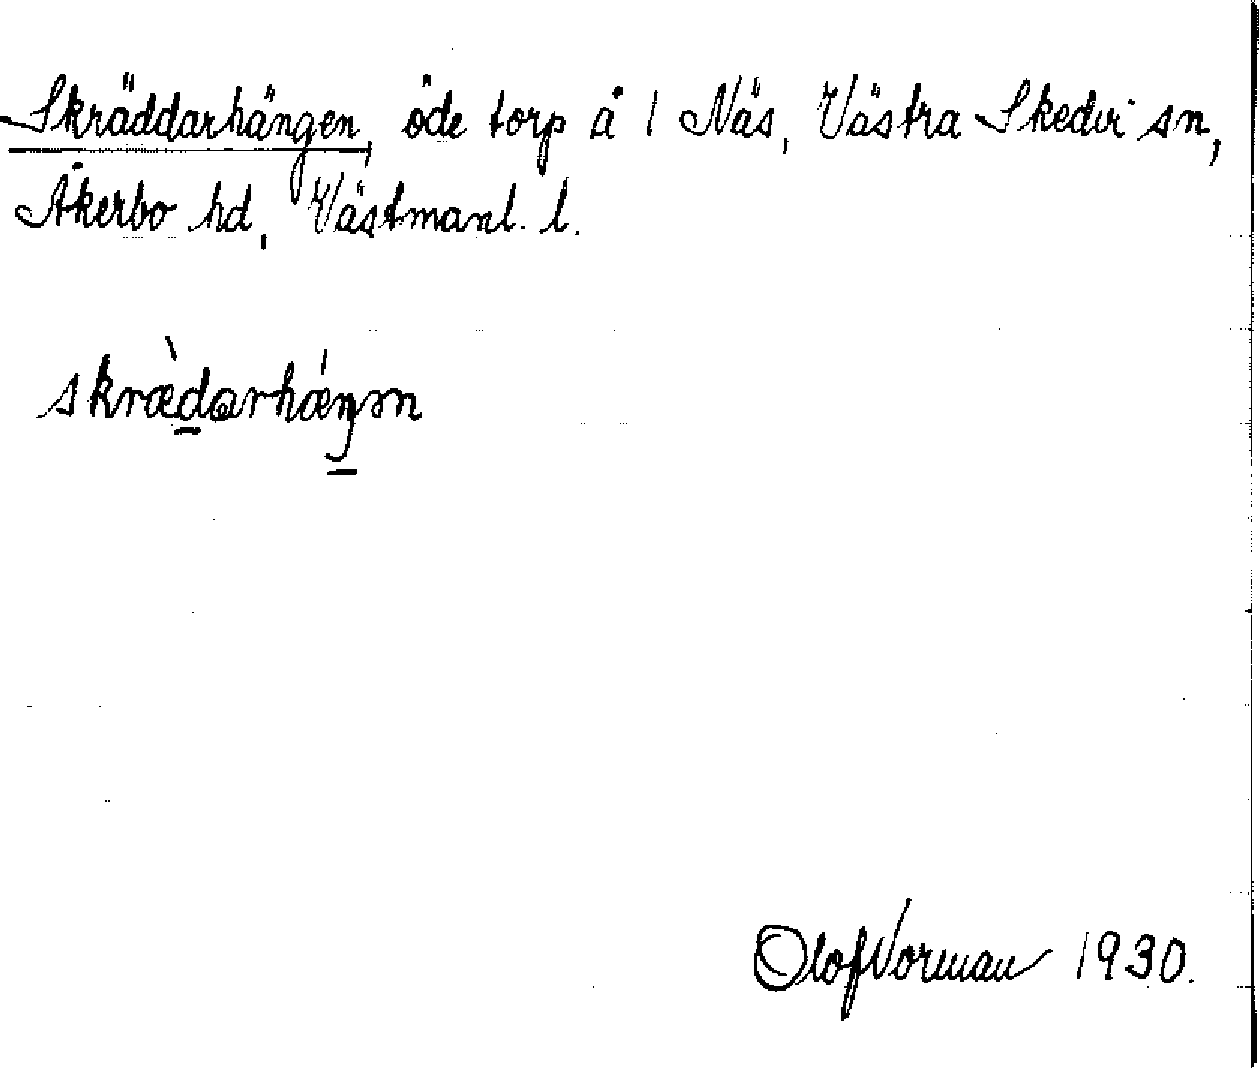 Skräddarhängen, öde torp å 1 Näs, Västra Skedvi sn,
Åkerbo hd, Västmanl. l.
skræ̀darhǽŋən
Olof Norman 1930.